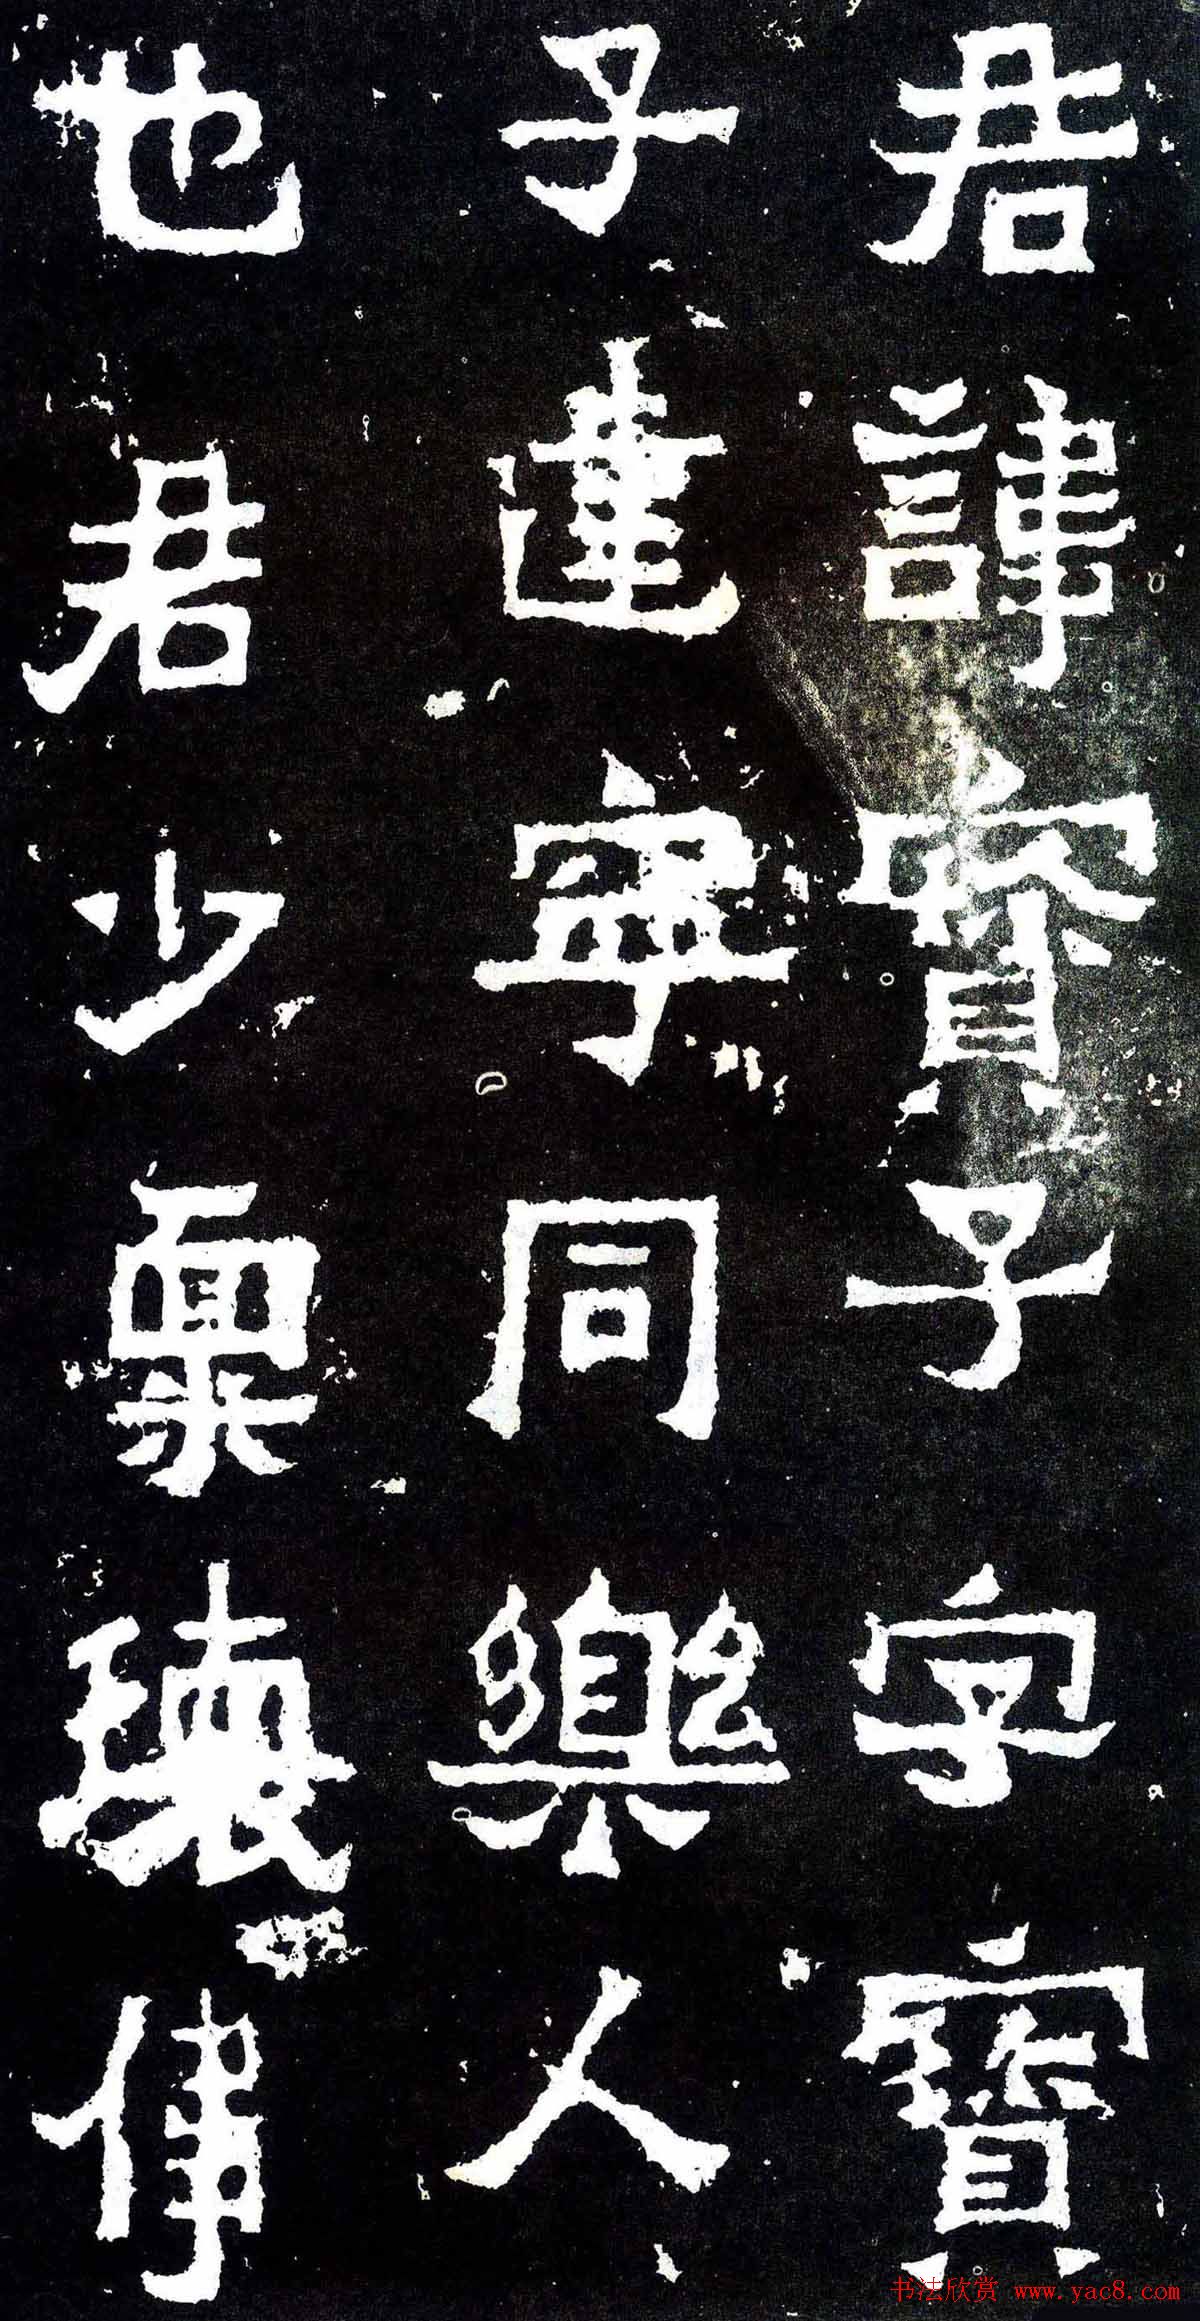 君諱寶子字寶
子建寧同樂人
也君少稟瓌偉
书法欣赏 www.yac8.com